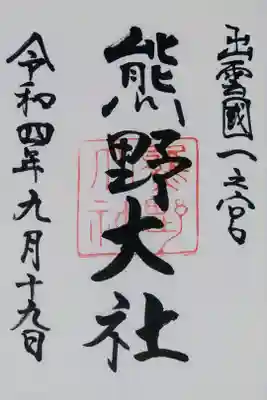 出雲國一之宮
熊野大社
令和四年九月十九日
熊野大社